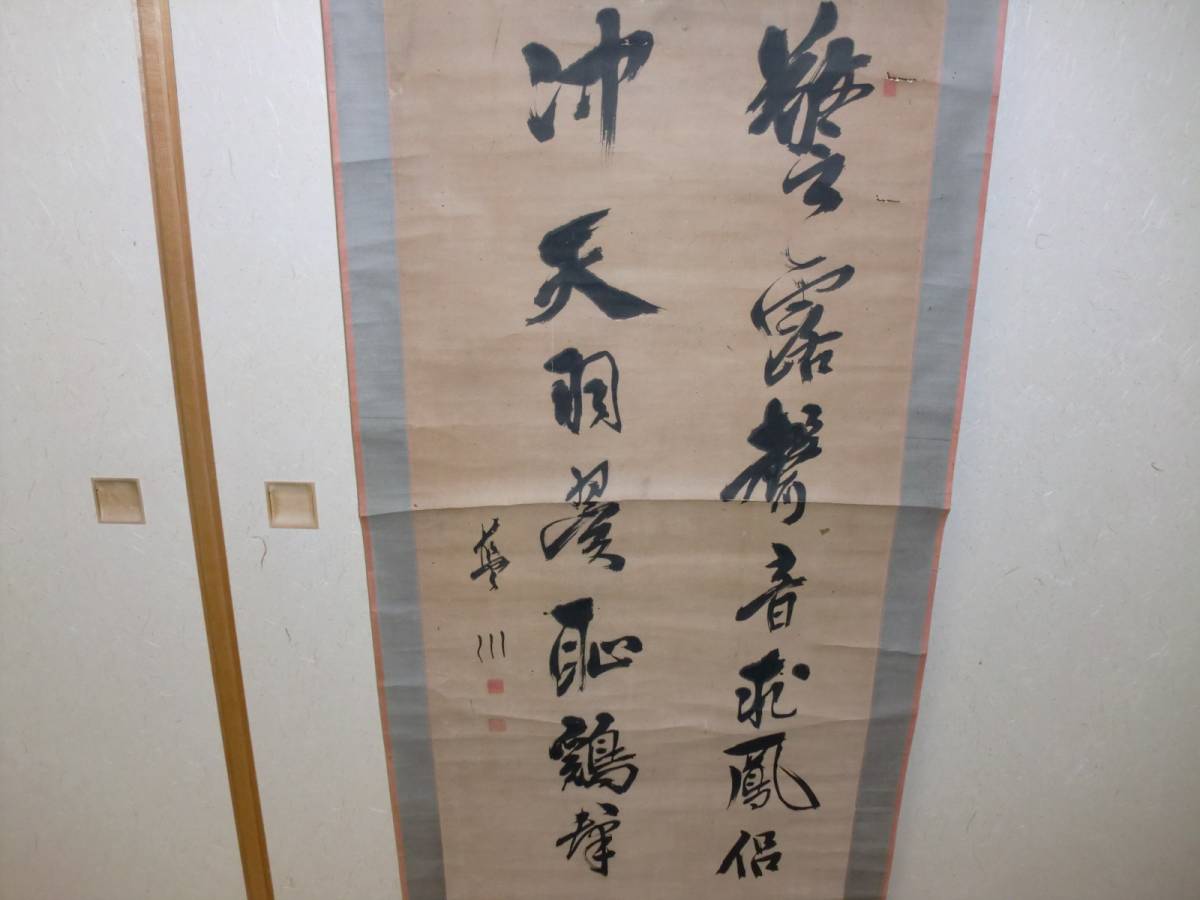 警露聲音求鳳侶
冲天羽翼恥鷄群
川